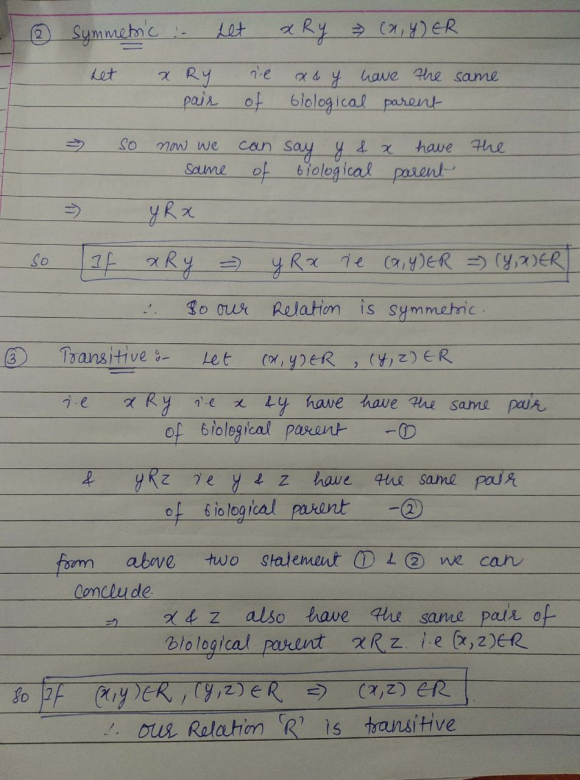 ② Symmetric :- Let xRy ⇒ (x,y)∈R
Let xRy i.e x & y have the same
pair of biological parent
⇒ so now we can say y & x have the
same of biological parent.
⇒ yRx
so If xRy ⇒ yRx ie (x,y)∈R ⇒ (y,x)∈R
∴ So our Relation is symmetric.
③ Transitive :- Let (x,y)∈R , (y,z)∈R
i.e xRy i.e x & y have have the same pair
of biological parent -①
& yRz ie y & z have the same pair
of biological parent -②
from above two statement ① & ② we can
conclude.
⇒ x & z also have the same pair of
biological parent xRz i.e (x,z)∈R
so If (x,y)∈R , (y,z)∈R ⇒ (x,z)∈R
∴ our Relation 'R' is transitive